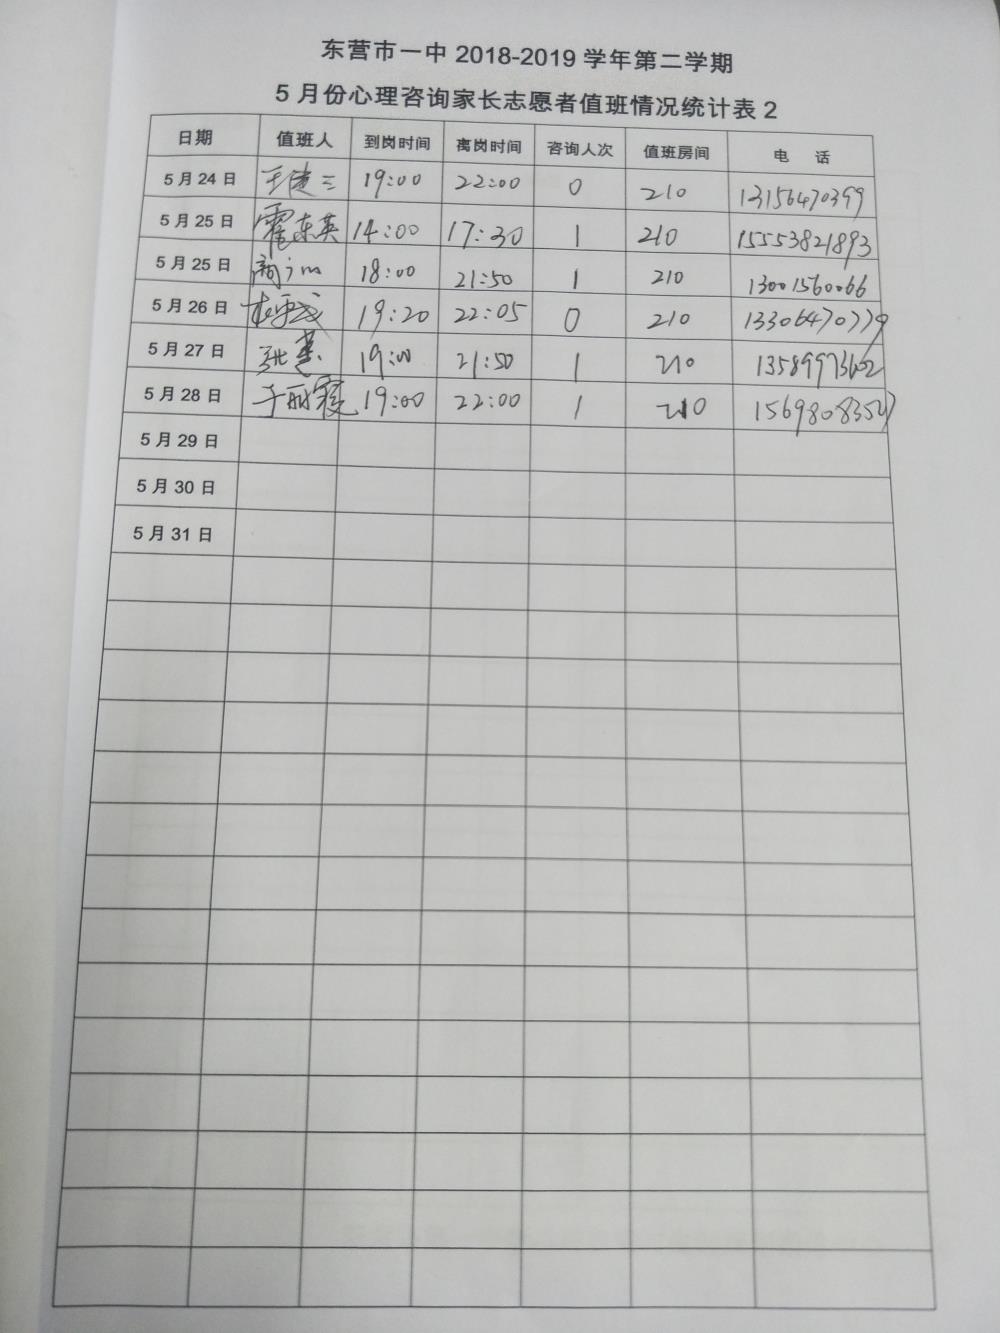 东营市一中 2018-2019 学年第二学期
5 月份心理咨询家长志愿者值班情况统计表 2
日期 值班人 到岗时间 离岗时间 咨询人次 值班房间 电 话
5 月 24 日 19:00 22:00 0 210 13156470399
5 月 25 日 霍东英 14:00 17:30 1 210 15553821893
5 月 25 日 18:00 21:50 1 210 13001560066
5 月 26 日 19:20 22:05 0 210 13306470779
5 月 27 日 张慧 19:00 21:50 1 210
5 月 28 日 于丽霞 19:00 22:00 1 210
5 月 29 日
5 月 30 日
5 月 31 日